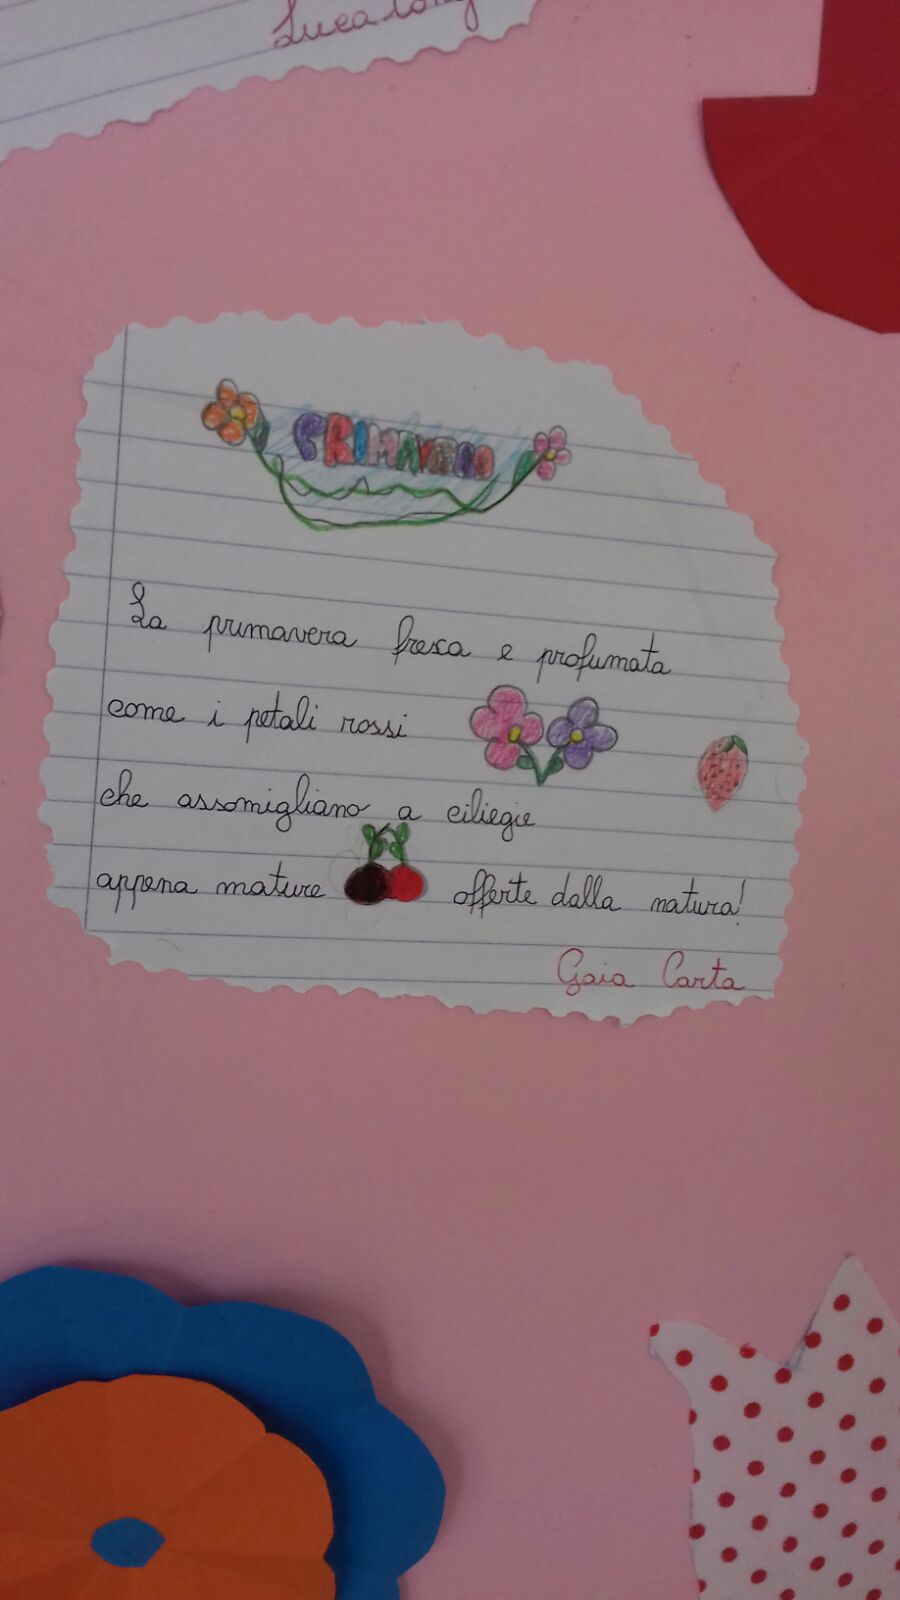 PRIMAVERA
La primavera fresca e profumata
come i petali rossi
che assomigliano a ciliegie
appena mature offerte dalla natura!
Gaia Carta